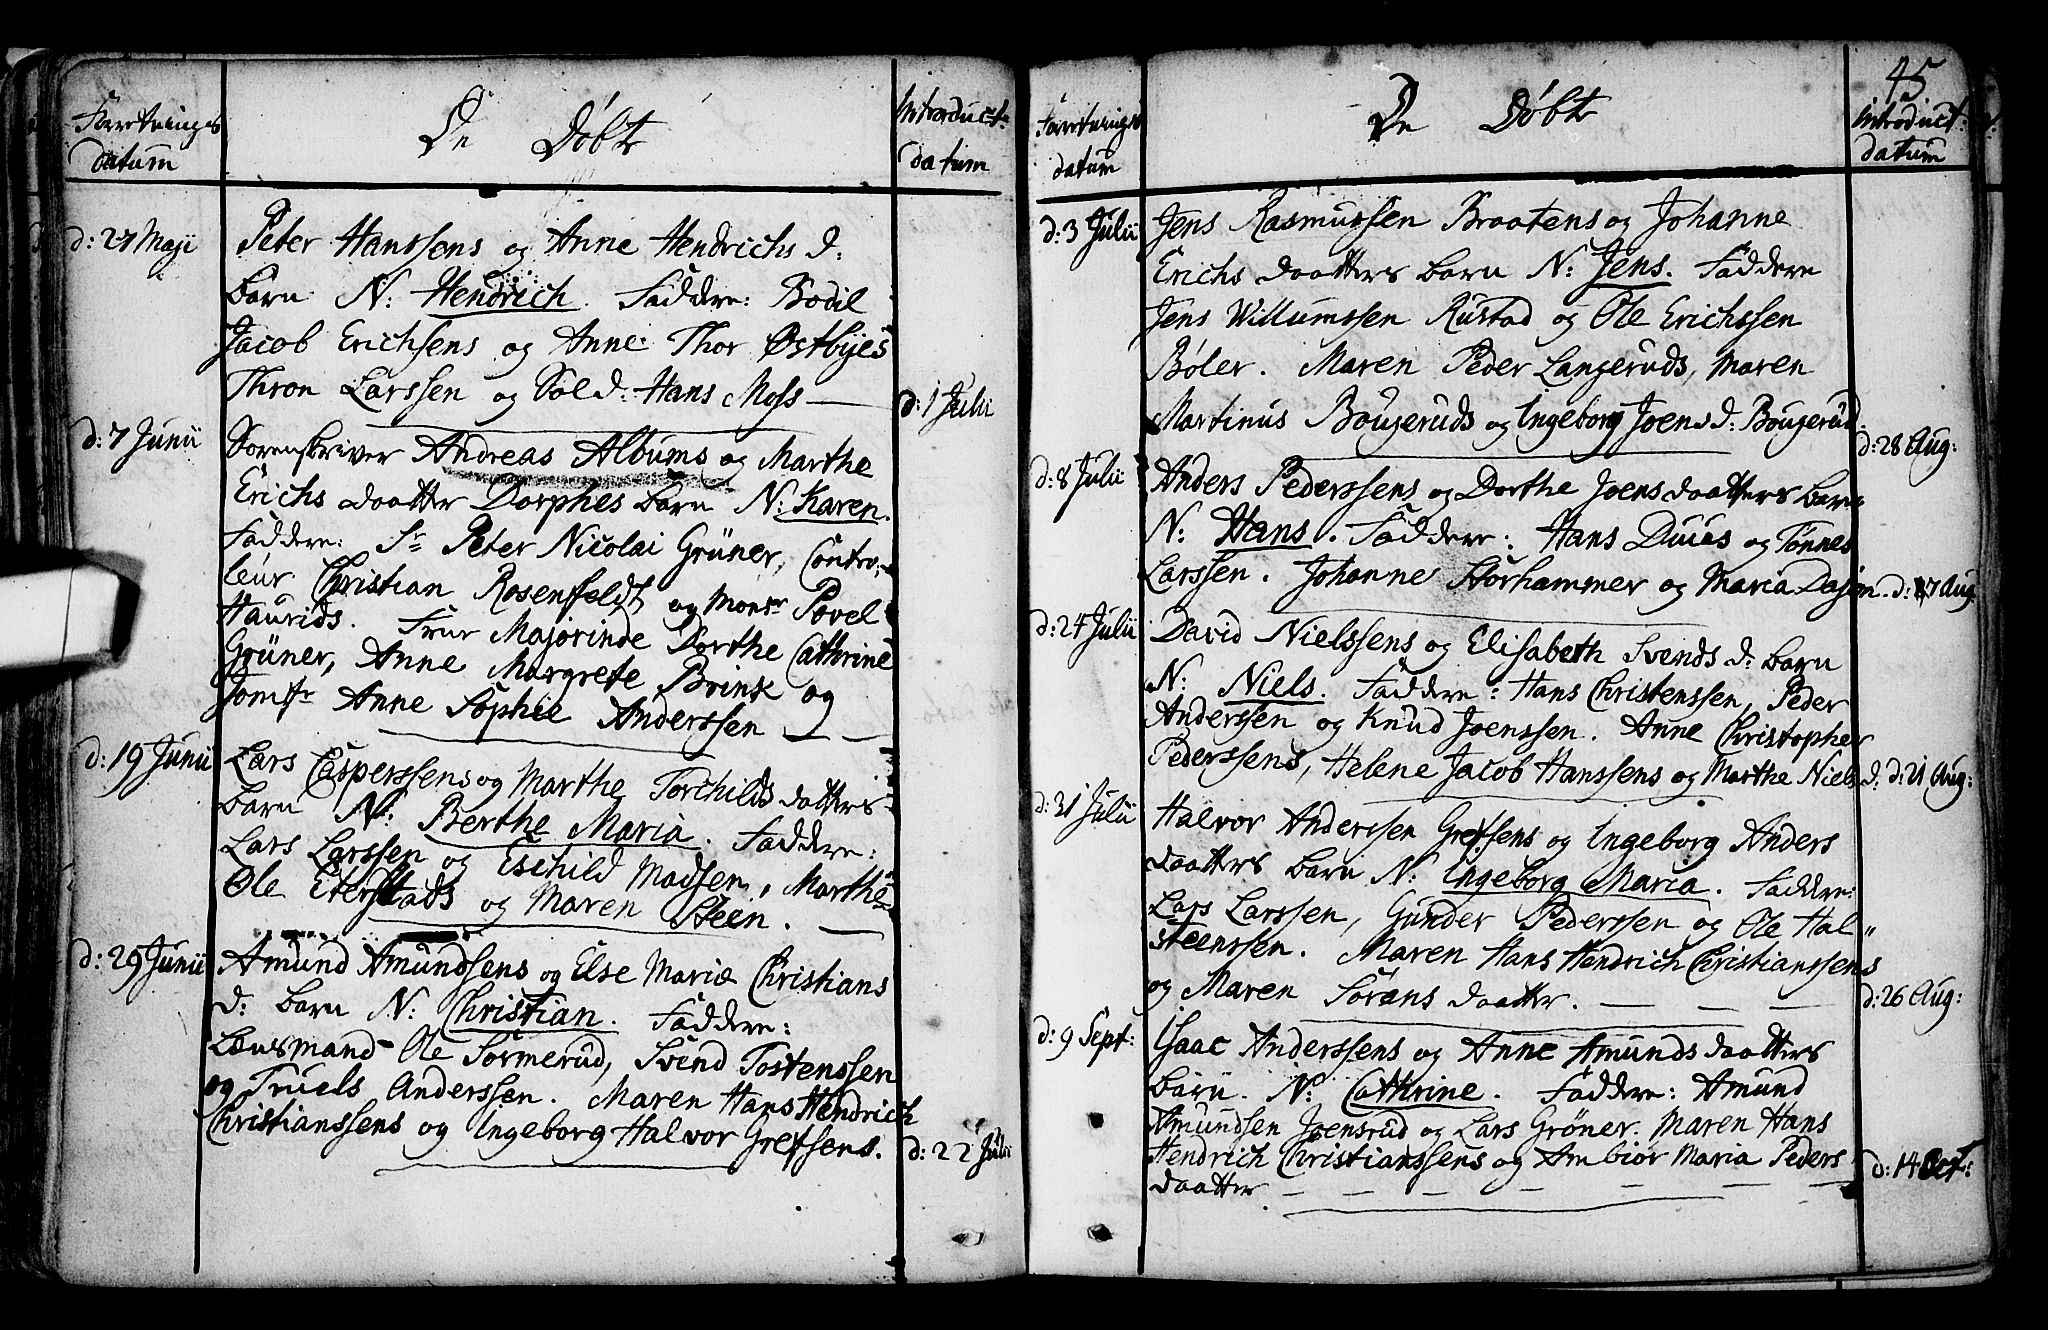 Forretnings
datum
De Døbte
Introduct:
datum
d: 27 Maji
Peter Hanssens og Anne Hendrichs d:
barn N: Hendrich. Faddere: Bodil
Jacob Erichsens og Anne Thor Østbyes
Thron Larssen og Sold: Hans Moss —
d: 1 Julii
d: 7 Junii
Sorenskriver Andreas Albums og Marthe
Erichs daatter Dorphes barn N: Karen.
Faddere: Sr Peter Nicolai Grüner, Contro-
leur Christian Rosenfeldt og Monsr Povel
Haurids. Frue Majorinde Dorthe Cathrine
Grüner, Anne Margrete Brink og
Jomfr Anne Sophie Anderssen — —
d: 19 Junii
Lars Casperssens og Marthe Torchilds daatters
barn N: Berthe Maria. Faddere:
Lars Larssen og Eschild Madsen, Marthe
Ole Eterstads og Maren Steen. —
d: 29 Junii
Amund Amundsens og Else Mariæ Christians
d: barn N: Christian. Faddere:
Lænsmand Ole Sormerud, Svend Tostenssen
og Truels Anderssen. Maren Hans Hendrich
Christianssens og Ingeborg Halvor Grefsens.
d: 22 Julii
45
Forretnings
datum
De Døbte
introduct:
datum
d: 3 Julii
Jens Rasmussen Braatens og Johanne
Erichs daatters barn N: Jens. Faddere
Jens Willumssen Rustad og Ole Erichssen
Bøler. Maren Peder Langeruds, Maren
Martinus Bougeruds og Ingeborg Joens d: Bougerud.
d: 28 Aug:
d: 8 Julii
Anders Pederssens og Dorthe Joens daatters barn
N: Hans. Faddere: Hans Duus og Tønnes
Larssen. Johanne Storhammer og Maria Dasen.
d: 7 Aug
d: 24 Julii
David Nielssens og Elisabeth Svends d: barn
N: Niels. Faddere: Hans Christenssen, Peder
Anderssen og Knud Joenssen. Anne Christopher
Pederssens, Helene Jacob Hanssens og Marthe Niels d.
d: 21 Aug:
d: 31 Julii
Halvor Anderssen Grefsens og Ingeborg Anders
daatters barn N: Ingeborg Maria. Faddere:
Lars Larssen, Gunder Pederssen og Ole Hal-
steenssen. Maren Hans Hendrich Christianssens
og Maren Sørens daatter. — — — —
d: 26 Aug:
d: 9 Sept:
Isaac Anderssens og Anne Amunds daatters
barn. N: Cathrine. Faddere: Amund
Amundsen Joensrud og Lars Grøner. Maren Hans
Hendrich Christianssens og Anbiør Maria Peders
daatter — — — — — — — —
d: 14 Oct: